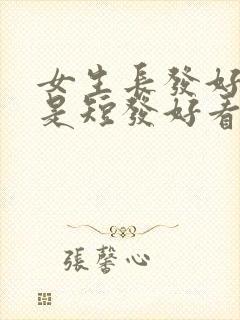 女生長發好
是短發好看
張馨心